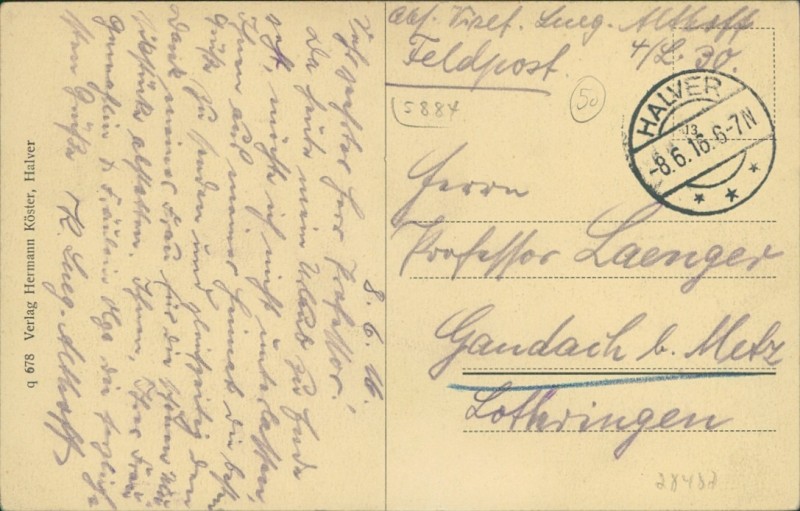 8. 6. 16.
Sehr geehrter Herr Professor!
Da heute mein Urlaub zu Ende
geht, möchte ich nicht unterlassen,
Ihnen aus meiner Heimat die besten
Grüße zu senden und gleichzeitig den
Dank meiner Frau für die schönen
abstatten. Ihnen, Ihrer Frau
Gemahlin u. Fräulein Olga die herzlich-
sten Grüße K. Lueg-Althoff
q 678 Verlag Hermann Köster, Halver
Abs. Vizef. Lueg-Althoff
4/L. 30.
Feldpost.
5884
50
HALVER
-8.6.16.6-7N
Herrn
Professor Laenger
Gandach b. Metz
Lothringen
28482